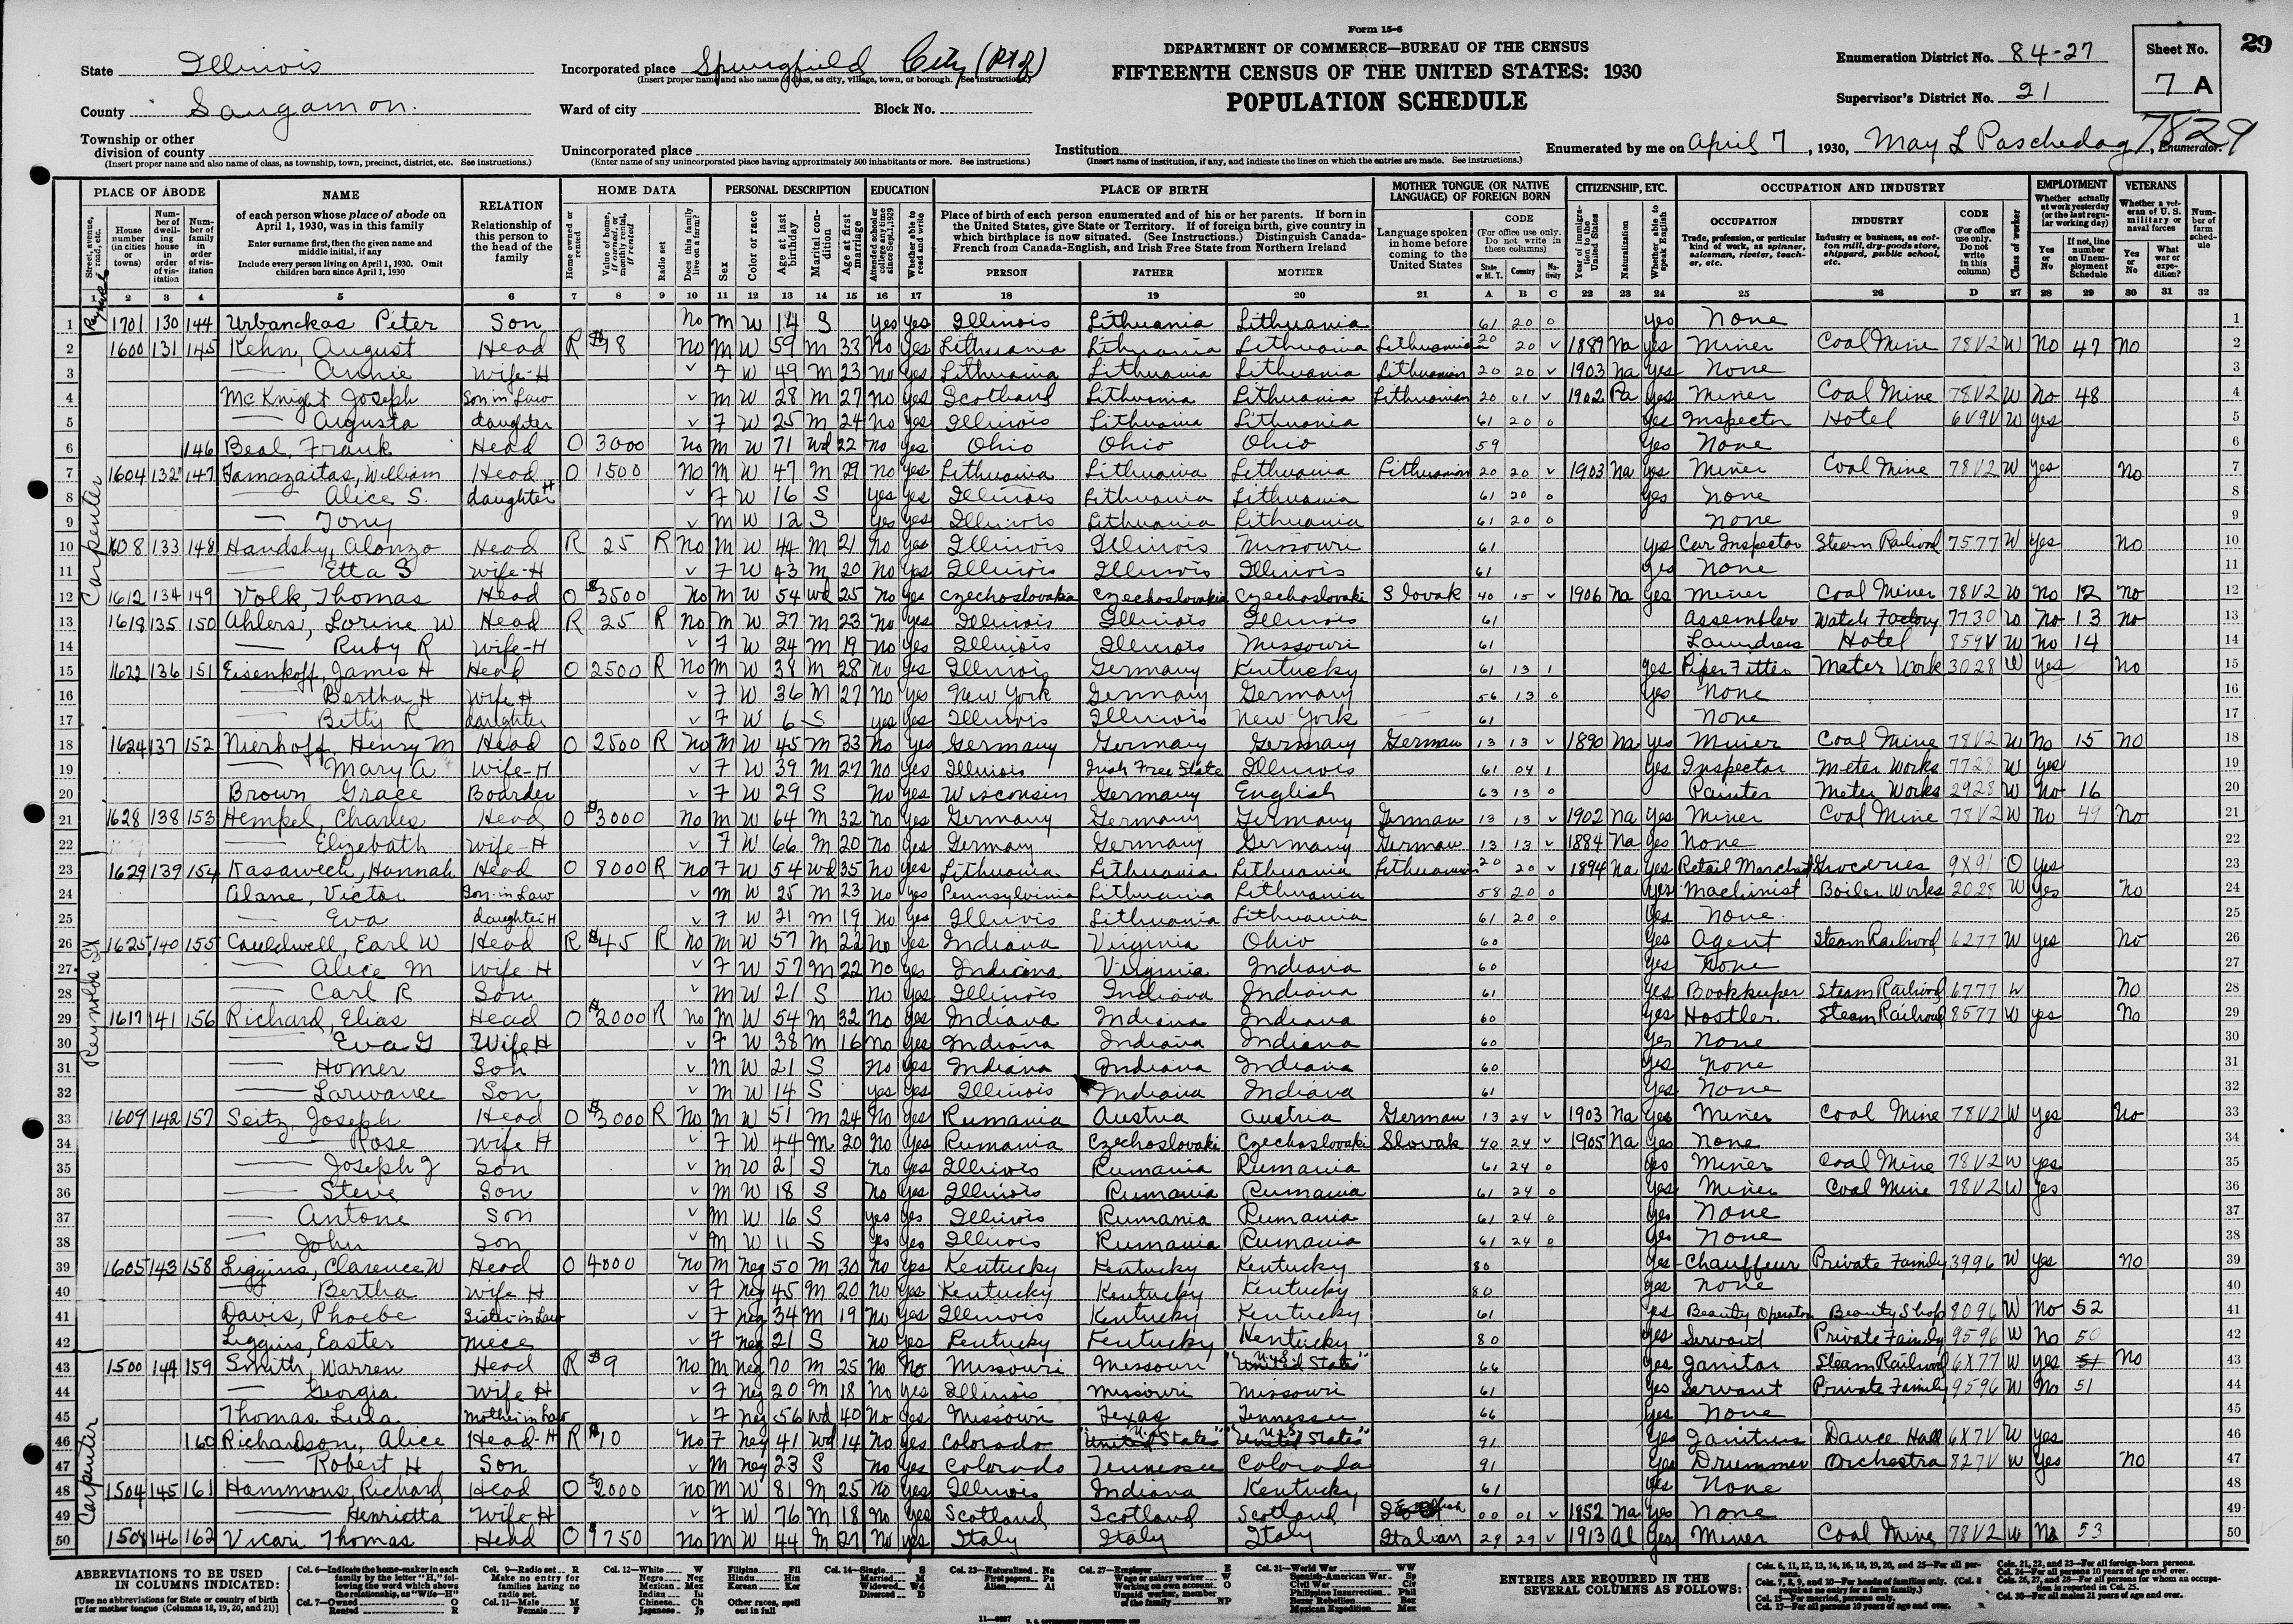 Form 15-6
DEPARTMENT OF COMMERCE—BUREAU OF THE CENSUS
FIFTEENTH CENSUS OF THE UNITED STATES: 1930
POPULATION SCHEDULE
State Illinois
County Sangamon
Township or other division of county
(Insert proper name and also name of class, as township, town, precinct, district, etc. See instructions.)
Incorporated place Springfield City
(Insert proper name and also name of class, as city, village, town, or borough. See instructions.)
Ward of city Block No.
Unincorporated place
(Enter name of any unincorporated place having approximately 500 inhabitants or more. See instructions.)
Institution
(Insert name of institution, if any, and indicate the lines on which the entries are made. See instructions.)
Enumeration District No. 84-27
Supervisor's District No. 21
Sheet No. 7 A
29
Enumerated by me on April 7, 1930, May L Paschedag, Enumerator.
7829
PLACE OF ABODE NAME RELATION HOME DATA PERSONAL DESCRIPTION EDUCATION PLACE OF BIRTH MOTHER TONGUE (OR NATIVE LANGUAGE) OF FOREIGN BORN CITIZENSHIP, ETC. OCCUPATION AND INDUSTRY EMPLOYMENT VETERANS
1 1701 130 144 Urbanckas Peter Son No M W 14 S Yes Yes Illinois Lithuania Lithuania 61 20 0 Yes None
2 1600 131 145 Kehn, August Head R $18 No M W 59 M 33 No Yes Lithuania Lithuania Lithuania Lithuanian 20 20 V 1889 Na Yes Miner Coal Mine 78V2 W No 47 No
3 Annie Wife-H V F W 49 M 23 No Yes Lithuania Lithuania Lithuania Lithuanian 20 20 V 1903 Na Yes None
4 McKnight Joseph Son in Law V M W 28 M 27 No Yes Scotland Lithuania Lithuania Lithuanian 20 01 V 1902 Pa Yes Miner Coal Mine 78V2 W No 48
5 Augusta daughter V F W 25 M 24 No Yes Illinois Lithuania Lithuania 61 20 0 Yes Inspector Hotel 6V9V W Yes
6 146 Beal, Frank Head O 3000 No M W 71 Wd 22 No Yes Ohio Ohio Ohio 59 Yes None
7 1604 132 147 Tamazaitas, William Head O 1500 No M W 47 M 29 No Yes Lithuania Lithuania Lithuania Lithuanian 20 20 V 1903 Na Yes Miner Coal Mine 78V2 W Yes No
8 Alice S. daughter H V F W 16 S Yes Yes Illinois Lithuania Lithuania 61 20 0 Yes None
9 Tony V M W 12 S Yes Yes Illinois Lithuania Lithuania 61 20 0 None
10 1608 133 148 Handshy, Alonzo Head R 25 R No M W 44 M 21 No Yes Illinois Illinois Missouri 61 Yes Car Inspector Steam Railroad 7577 W Yes No
11 Etta S Wife-H V F W 43 M 20 No Yes Illinois Illinois Illinois 61 Yes None
12 1612 134 149 Volk, Thomas Head O $3500 No M W 54 Wd 25 No Yes Czechoslovakia Czechoslovakia Czechoslovaki Slovak 40 15 V 1906 Na Yes Miner Coal Miner 78V2 W No 12 No
13 1618 135 150 Ahlers, Lorine W Head R 25 R No M W 27 M 23 No Yes Illinois Illinois Illinois 61 Assembler Watch Factory 7730 W No 13 No
14 Ruby R Wife-H V F W 24 M 19 No Yes Illinois Illinois Missouri 61 Laundress Hotel 859V W No 14
15 1622 136 151 Eisenkoff, James H Head O 2500 R No M W 38 M 28 No Yes Illinois Germany Kentucky 61 13 1 Yes Piper Fitter Meter Work 3028 W Yes No
16 Bertha H Wife H V F W 36 M 27 No Yes New York Germany Germany 56 13 0 Yes None
17 Betty R daughter V F W 6 S Yes Yes Illinois Illinois New York 61 None
18 1624 137 152 Nierhoff, Henry M Head O 2500 R No M W 45 M 33 No Yes Germany Germany Germany German 13 13 V 1890 Na Yes Miner Coal Mine 78V2 W No 15 No
19 Mary A Wife-H V F W 39 M 27 No Yes Illinois Irish Free State Illinois 61 04 1 Yes Inspector Meter Works 7728 W Yes
20 Brown Grace Boarder V F W 29 S No Yes Wisconsin Germany English 63 13 0 Painter Meter Works 2928 W No 16
21 1628 138 153 Hempel, Charles Head O $3000 No M W 64 M 32 No Yes Germany Germany Germany German 13 13 V 1902 Na Yes Miner Coal Mine 78V2 W No 49 No
22 Elizebath Wife-H V F W 66 M 20 No Yes Germany Germany Germany German 13 13 V 1884 Na Yes None
23 1629 139 154 Kasawech, Hannah Head O 8000 R No F W 54 Wd 35 No Yes Lithuania Lithuania Lithuania Lithuanian 20 20 V 1894 Na Yes Retail Merchant Groceries 9X91 O Yes
24 Alane, Victor Son-in-Law V M W 25 M 23 No Yes Pennsylvinia Lithuania Lithuania 58 20 0 Yes Machinist Boiler Works 2028 W Yes No
25 Eva daughter H V F W 21 M 19 No Yes Illinois Lithuania Lithuania 61 20 0 Yes None
26 1625 140 155 Cauldwell, Earl W Head R $45 R No M W 57 M 22 No Yes Indiana Virginia Ohio 60 Yes Agent Steam Railroad 6277 W Yes No
27 Alice M Wife H V F W 57 M 22 No Yes Indiana Virginia Indiana 60 Yes None
28 Carl R Son V M W 21 S No Yes Illinois Indiana Indiana 61 Yes Bookkeeper Steam Railroad 6777 W No
29 1617 141 156 Richard, Elias Head O $2000 R No M W 54 M 32 No Yes Indiana Indiana Indiana 60 Yes Hostler Steam Railroad 8577 W Yes No
30 Eva G Wife H V F W 38 M 16 No Yes Indiana Indiana Indiana 60 Yes None
31 Homer Son V M W 21 S No Yes Indiana Indiana Indiana 60 Yes None
32 Larwance Son V M W 14 S Yes Yes Illinois Indiana Indiana 61 Yes None
33 1609 142 157 Seitz, Joseph Head O $3000 R No M W 51 M 24 No Yes Rumania Austria Austria German 13 24 V 1903 Na Yes Miner Coal Mine 78V2 W Yes No
34 Rose Wife H V F W 44 M 20 No Yes Rumania Czechoslovaki Czechoslovaki Slovak 40 24 V 1905 Na Yes None
35 Joseph J Son V M W 21 S No Yes Illinois Rumania Rumania 61 24 0 Yes Miner Coal Mine 78V2 W Yes
36 Steve Son V M W 18 S No Yes Illinois Rumania Rumania 61 24 0 Yes Miner Coal Mine 78V2 W Yes
37 Antone Son V M W 16 S Yes Yes Illinois Rumania Rumania 61 24 0 Yes None
38 John Son V M W 11 S Yes Yes Illinois Rumania Rumania 61 24 0 Yes None
39 1605 143 158 Liggins, Clarence W Head O 4000 No M Neg 50 M 30 No Yes Kentucky Kentucky Kentucky 80 Yes Chauffeur Private Family 3996 W Yes No
40 Bertha Wife H V F Neg 45 M 20 No Yes Kentucky Kentucky Kentucky 80 Yes None
41 Davis, Phoebe Sister-in-Law V F Neg 34 M 19 No Yes Illinois Kentucky Kentucky 61 Yes Beauty Operator Beauty Shop 8096 W No 52
42 Liggins, Easter Niece V F Neg 21 S No Yes Kentucky Kentucky Kentucky 80 Yes Servant Private Family 9596 W No 50
43 1500 144 159 Smith, Warren Head R $9 No M Neg 70 M 25 No No Missouri Missouri "United States" 66 Yes Janitor Steam Railroad 6X77 W Yes 51 No
44 Georgia Wife H V F Neg 20 M 18 No Yes Illinois Missouri Missouri 61 Yes Servant Private Family 9596 W No 51
45 Thomas Lula Mother in Law V F Neg 56 Wd 40 No Yes Missouri Texas Tennessee 66 Yes None
46 160 Richardson, Alice Head-H R $10 No F Neg 41 Wd 14 No Yes Colorado "United States" "United States" 91 Yes Janitress Dance Hall 6X7V W Yes
47 Robert H Son V M Neg 23 S No Yes Colorado Tennessee Colorado 91 Yes Drummer Orchestra 827V W Yes No
48 1504 145 161 Hammons, Richard Head O $2000 No M W 81 M 25 No Yes Illinois Indiana Kentucky 61 Yes None
49 Henrietta Wife H V F W 76 M 18 No Yes Scotland Scotland Scotland 00 01 V 1852 Na Yes None
50 1508 146 162 Vicari Thomas Head O $750 No M W 44 M 27 No Yes Italy Italy Italy Italian 29 29 V 1913 Al Yes Miner Coal Mine 78V2 W No 53
Carpenter
Reynolds St
Carpenter
ABBREVIATIONS TO BE USED IN COLUMNS INDICATED:
[Use no abbreviations for State or country of birth or for mother tongue (Columns 18, 19, 20, and 21)]
ENTRIES ARE REQUIRED IN THE SEVERAL COLUMNS AS FOLLOWS: